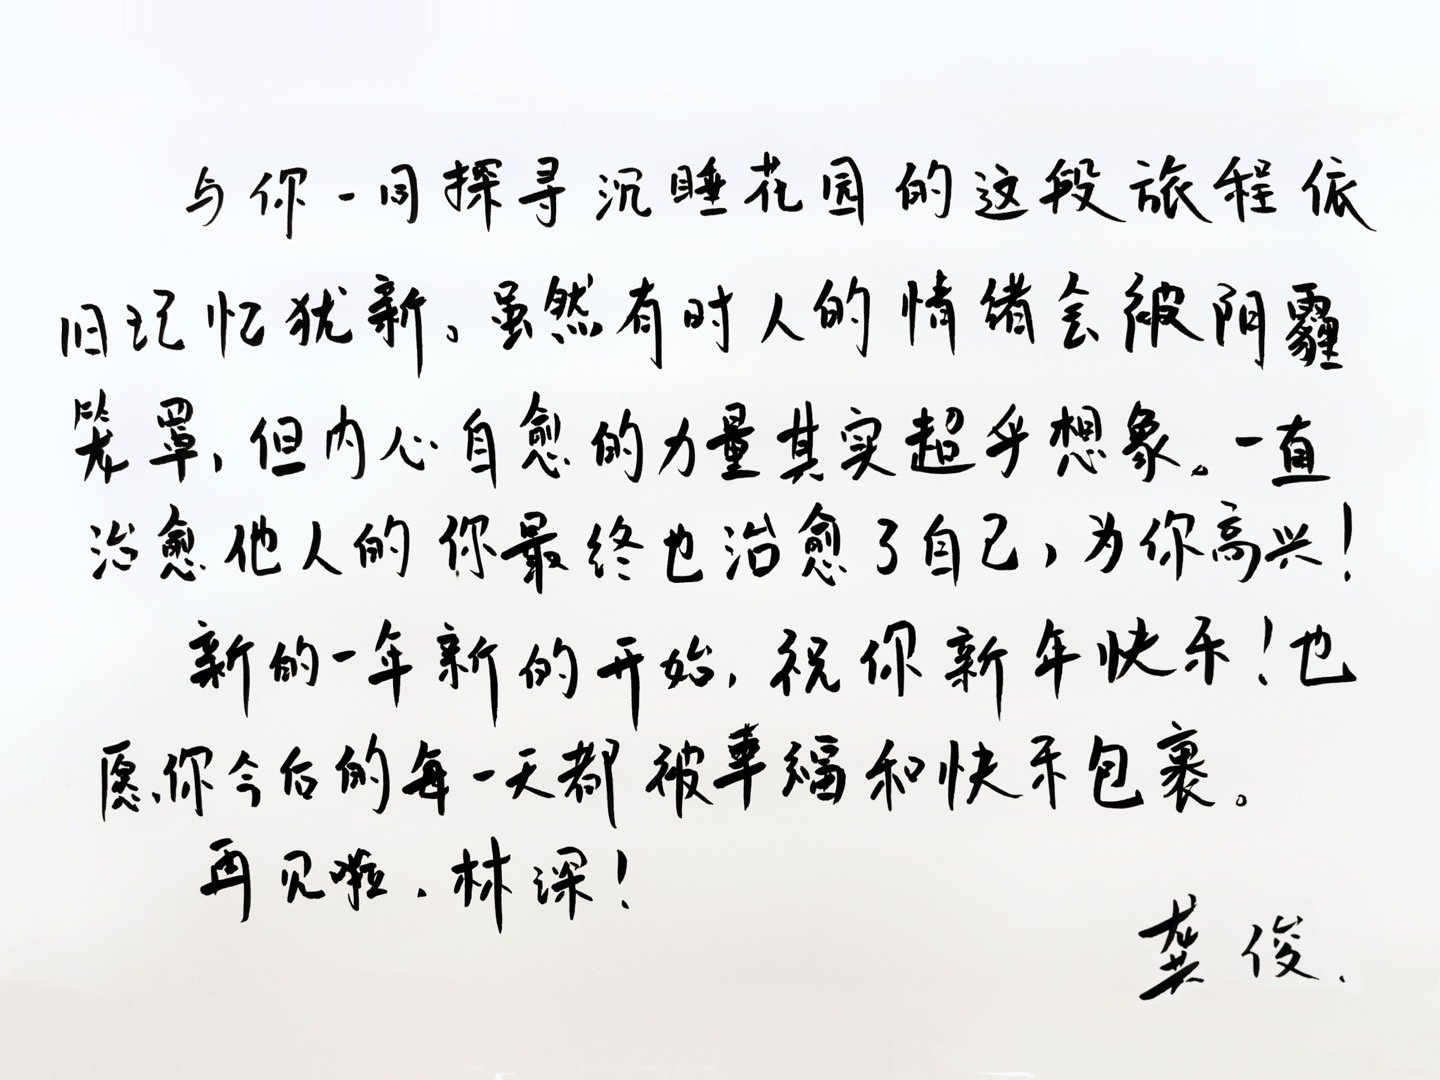 与你一同探寻沉睡花园的这段旅程依
旧记忆犹新。虽然有时人的情绪会被阴霾
笼罩，但内心自愈的力量其实超乎想象。一直
治愈他人的你最终也治愈了自己，为你高兴！
新的一年新的开始，祝你新年快乐！也
愿你今后的每一天都被幸福和快乐包裹。
再见啦，林深！
龚俊.